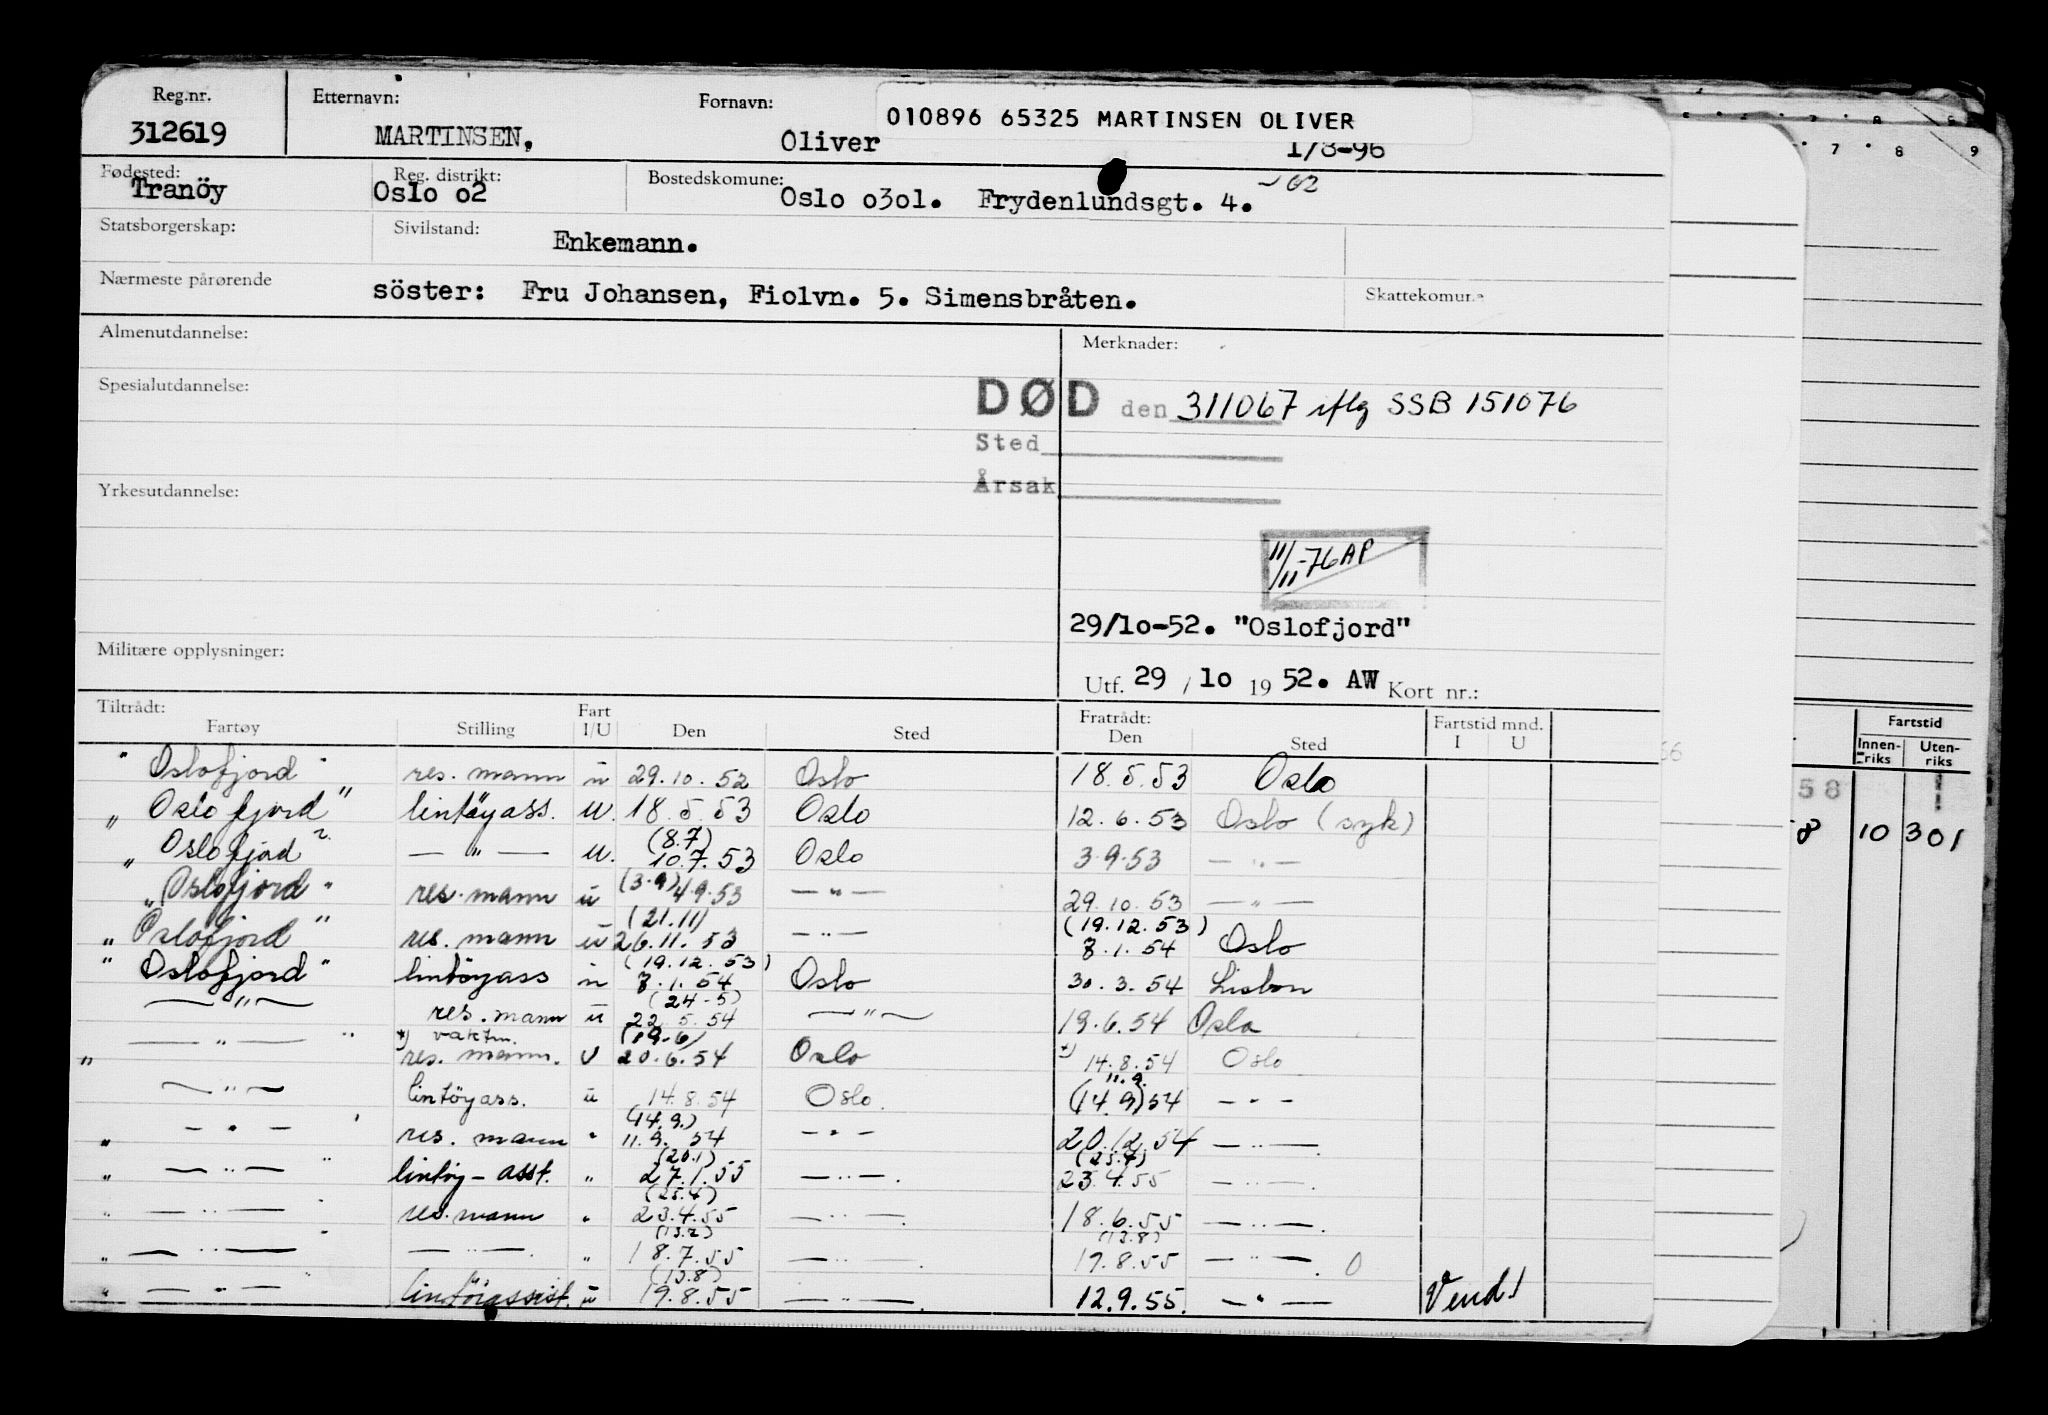 Reg.nr. Etternavn: Fornavn: 010896 65325 MARTINSEN OLIVER
312619 MARTINSEN, Oliver 1/8-96
Fødested: Reg. distrikt: Bostedskomune:
Tranöy Oslo o2 Oslo o3o1. Frydenlundsgt. 4. -62
Statsborgerskap: Sivilstand: Enkemann.
Nærmeste pårørende söster: Fru Johansen, Fiolvn. 5. Simensbråten. Skattekomune
Almenutdannelse: Merknader:
Spesialutdannelse: DØD den 311067 iflg SSB 151076
Sted
Årsak
Yrkesutdannelse:
11/11-76 AP
29/1o-52. "Oslofjord"
Militære opplysninger:
Utf. 29 / 1o 19 52. AW Kort nr.:
Tiltrådt: Fart Fratrådt: Fartstid mnd.
Fartøy Stilling I/U Den Sted Den Sted I U
"Oslofjord" res. mann u 29.10.52 Oslo 18.5.53 Oslo
"Oslofjord" lintöyass. u. 18.5.53 Oslo 12.6.53 Oslo (syk)
(8.7)
"Oslofjord" — " — u. 10.7.53 Oslo 3.9.53 — " —
"Oslofjord" res. mann u (3.9) 4.9.53 — " — 29.10.53 — " —
(21.11) (19.12.53)
"Oslofjord" res. mann u 26.11.53 — " — 8.1.54 Oslo
(19.12.53)
"Oslofjord" lintöyass u 8.1.54 Oslo 30.3.54 Lisbon
(24-5)
— " — res. mann u 22.5.54 — " — 19.6.54 Oslo
*) vaktm. (19-6)
" — " — " res. mann. U 20.6.54 Oslo *) 14.8.54 Oslo
11.9.
— " — lintöyass. u 14.8.54 Oslo. (14.9) 54 — " —
(14.9.)
" — " — " res. mann " 11.9.54 — " — 20.12.54 — " —
(20.1) (25.4)
" — " — " lintöy-asst. " 27.1.55 — " —. 23.4.55 — " —.
(25.4)
" — " — " res. mann " 23.4.55 — " —. 18.6.55 — " —.
(13.8)
" — " — " — " —. " 18.7.55 — " —. 19.8.55 — " —. 0
(13.8)
" — " — " lintöiassist. u 19.8.55 — " —. 12.9.55. — " — Vend!
7 8 9
Fartstid
Innen-riks Uten-riks
66
58
8 10 301